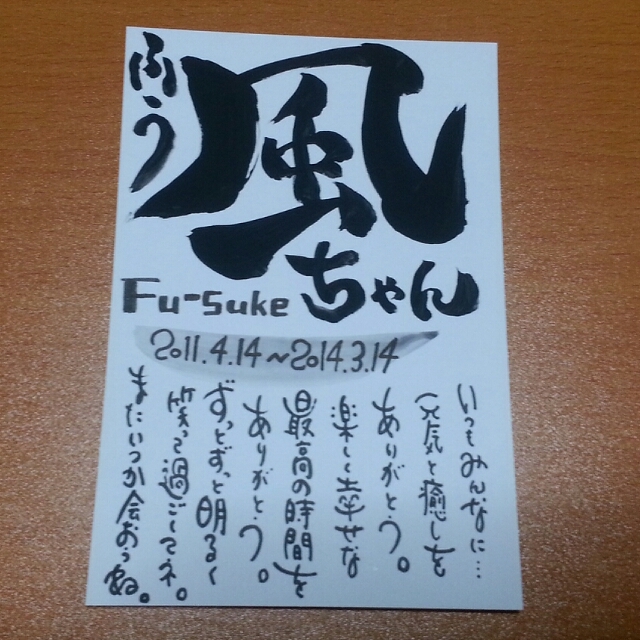 ふう
風
ちゃん
Fu-suke
2011.4.14~2014.3.14
いつもみんなに…
元気と癒しを
ありがとう。
楽しく幸せな
最高の時間を
ありがとう。
ずっとずっと明るく
笑って過ごしてネ。
またいつか会おうね。